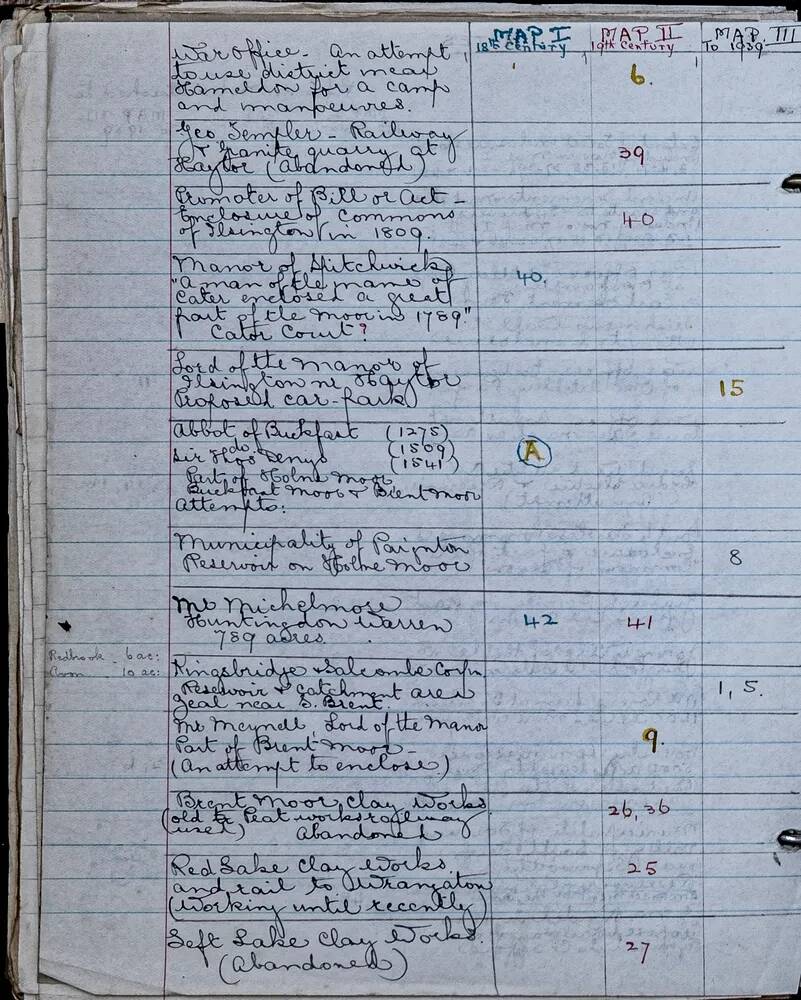 MAP I MAP II MAP III
18th Century 19th Century To 1939
War Office - An attempt
to use district near
Hameldon for a camp 6.
and manoeuvres.
Geo Templer - Railway
& Granite quarry at 39
Haytor (Abandoned)
Promoter of Bill or Act -
Enclosure of Commons 40
of Ilsington in 1809.
Manor of Spitchwick
"A man of the name of 40.
Cater enclosed a great
part of the moor in 1789."
Cator Court?
Lord of the Manor of
Ilsington nr Haytor 15
Proposed car-park
Abbot of Buckfast (1275)
do (1509) A
Sir Thos Denys (1541)
Part of Holne Moor
Buckfast Moor & Brent Moor
Attempts:
Municipality of Paignton
Reservoir on Holne Moor 8
Mr Michelmore
Huntingdon Warren 42 41
789 acres.
Redhook - 6 ac:
10 ac:
Kingsbridge & Salcombe Corpn
Reservoir & catchment area 1, 5.
near S. Brent.
Mr Meynell, Lord of the Manor
Part of Brent Moor - 9.
(An attempt to enclose.)
Brent Moor Clay Works 26, 36
(old Peat works railway
used) Abandoned
Red Lake Clay Works, 25
and rail to Wrangaton
(Working until recently)
Left Lake Clay Works. 27
(Abandoned)